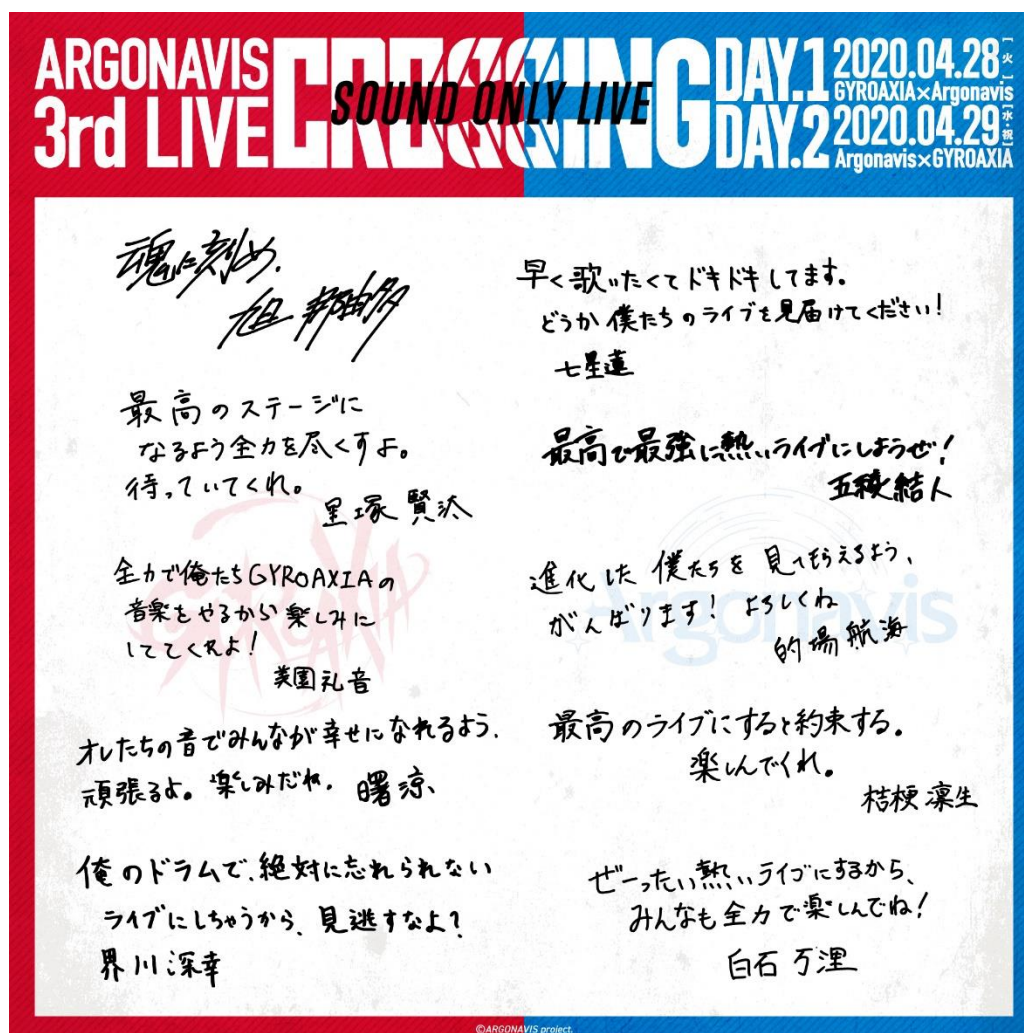 ARGONAVIS
3rd LIVE
CROSSING
SOUND ONLY LIVE
DAY.1 2020.04.28[火]
GYROAXIA×Argonavis
DAY.2 2020.04.29[水・祝]
Argonavis×GYROAXIA
魂に刻め.
旭 那由多
最高のステージに
なるよう全力を尽くすよ。
待っていてくれ。
里塚 賢汰
全力で俺たちGYROAXIAの
音楽をやるから楽しみに
しててくれよ!
美園礼音
オレたちの音でみんなが幸せになれるよう.
頑張るよ。楽しみだね. 曙 涼、
俺のドラムで、絶対に忘れられない
ライブにしちゃうから、見逃すなよ?
界川 深幸
GYROAXIA
早く歌いたくてドキドキしてます。
どうか僕たちのライブを見届けてください!
七星蓮
最高で最強に熱いライブにしようぜ!
五稜結人
進化した僕たちを見てもらえるよう、
がんばります! よろしくね
的場航海
最高のライブにすると約束する。
楽しんでくれ。
桔梗凛生
ぜーったい熱いライブにするから、
みんなも全力で楽しんでね!
白石万浬
Argonavis
©ARGONAVIS project.